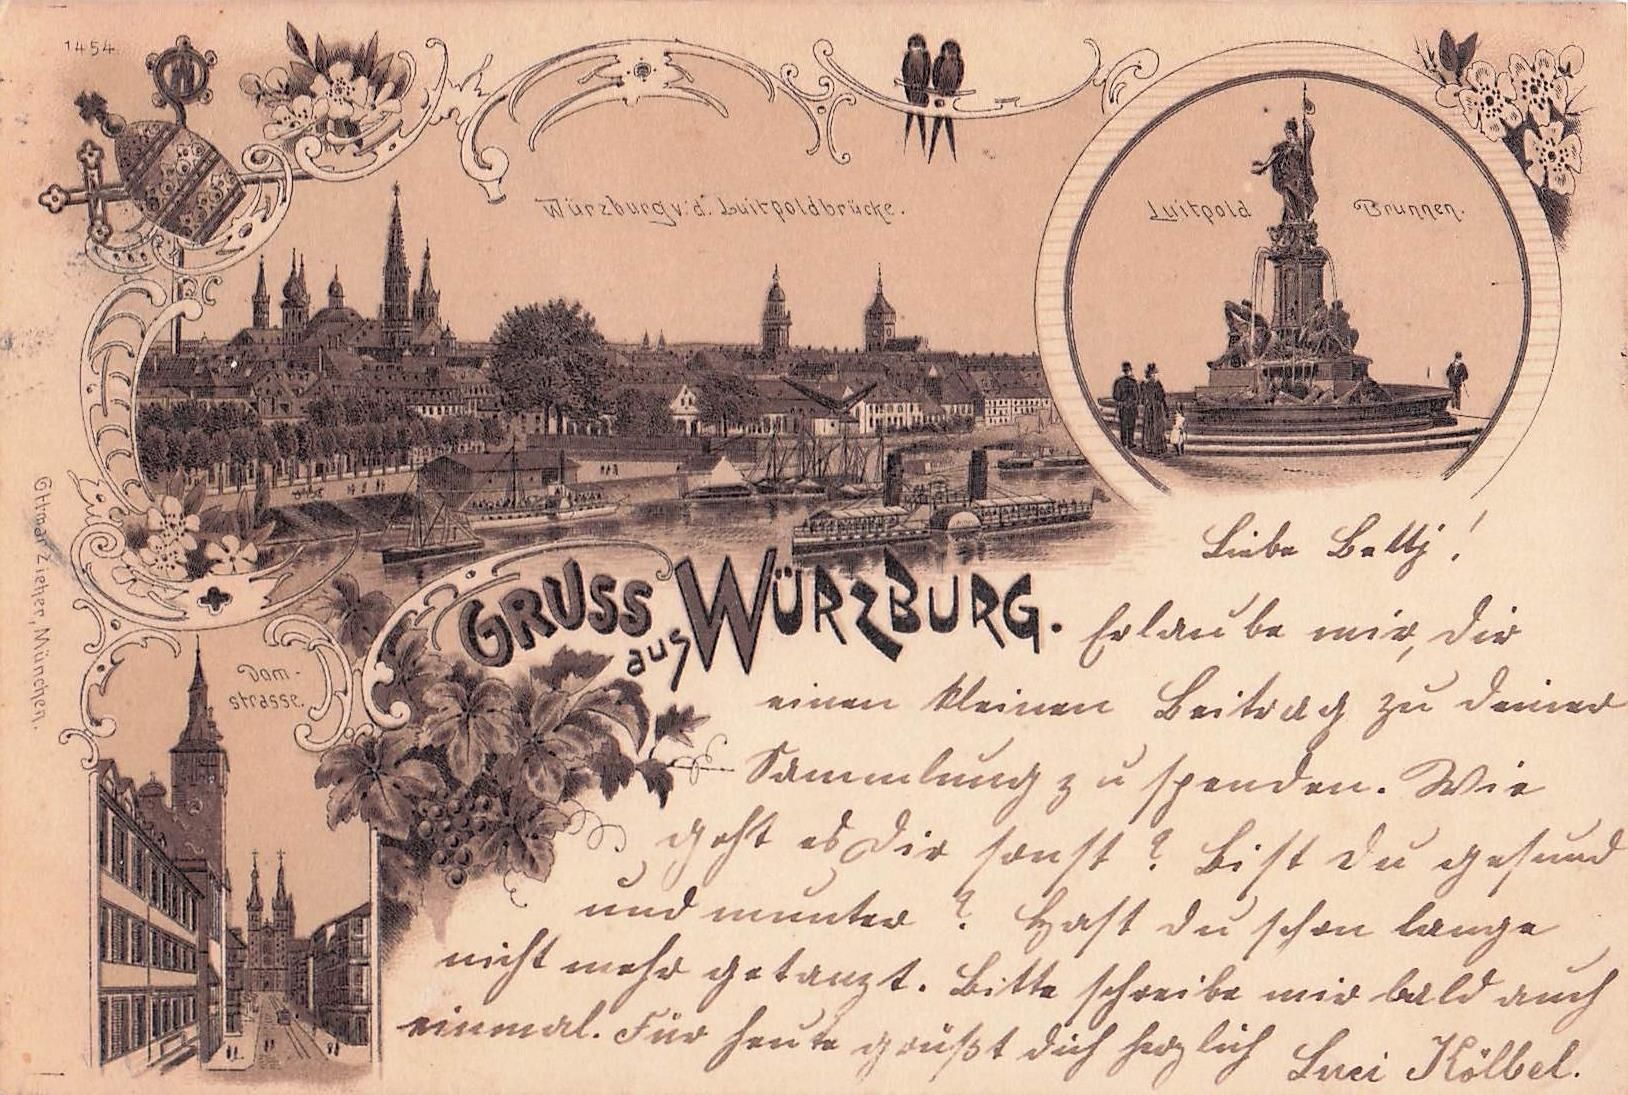 1454.
Würzburg v. d. Luitpoldbrücke.
Luitpold Brunnen.
Ottmar Zieher, München.
Dom-
strasse.
GRUSS
aus WÜRZBURG.
Liebe Betty!
Erlaube mir, dir
einen kleinen Beitrag zu deiner
Sammlung zu spenden. Wie
geht es Dir sonst? Bist Du gesund
und munter? Hast Du schon lange
nicht mehr getanzt. Bitte schreibe mir bald auch
einmal. Für heute grüßt dich herzlich
Luci Kölbel.